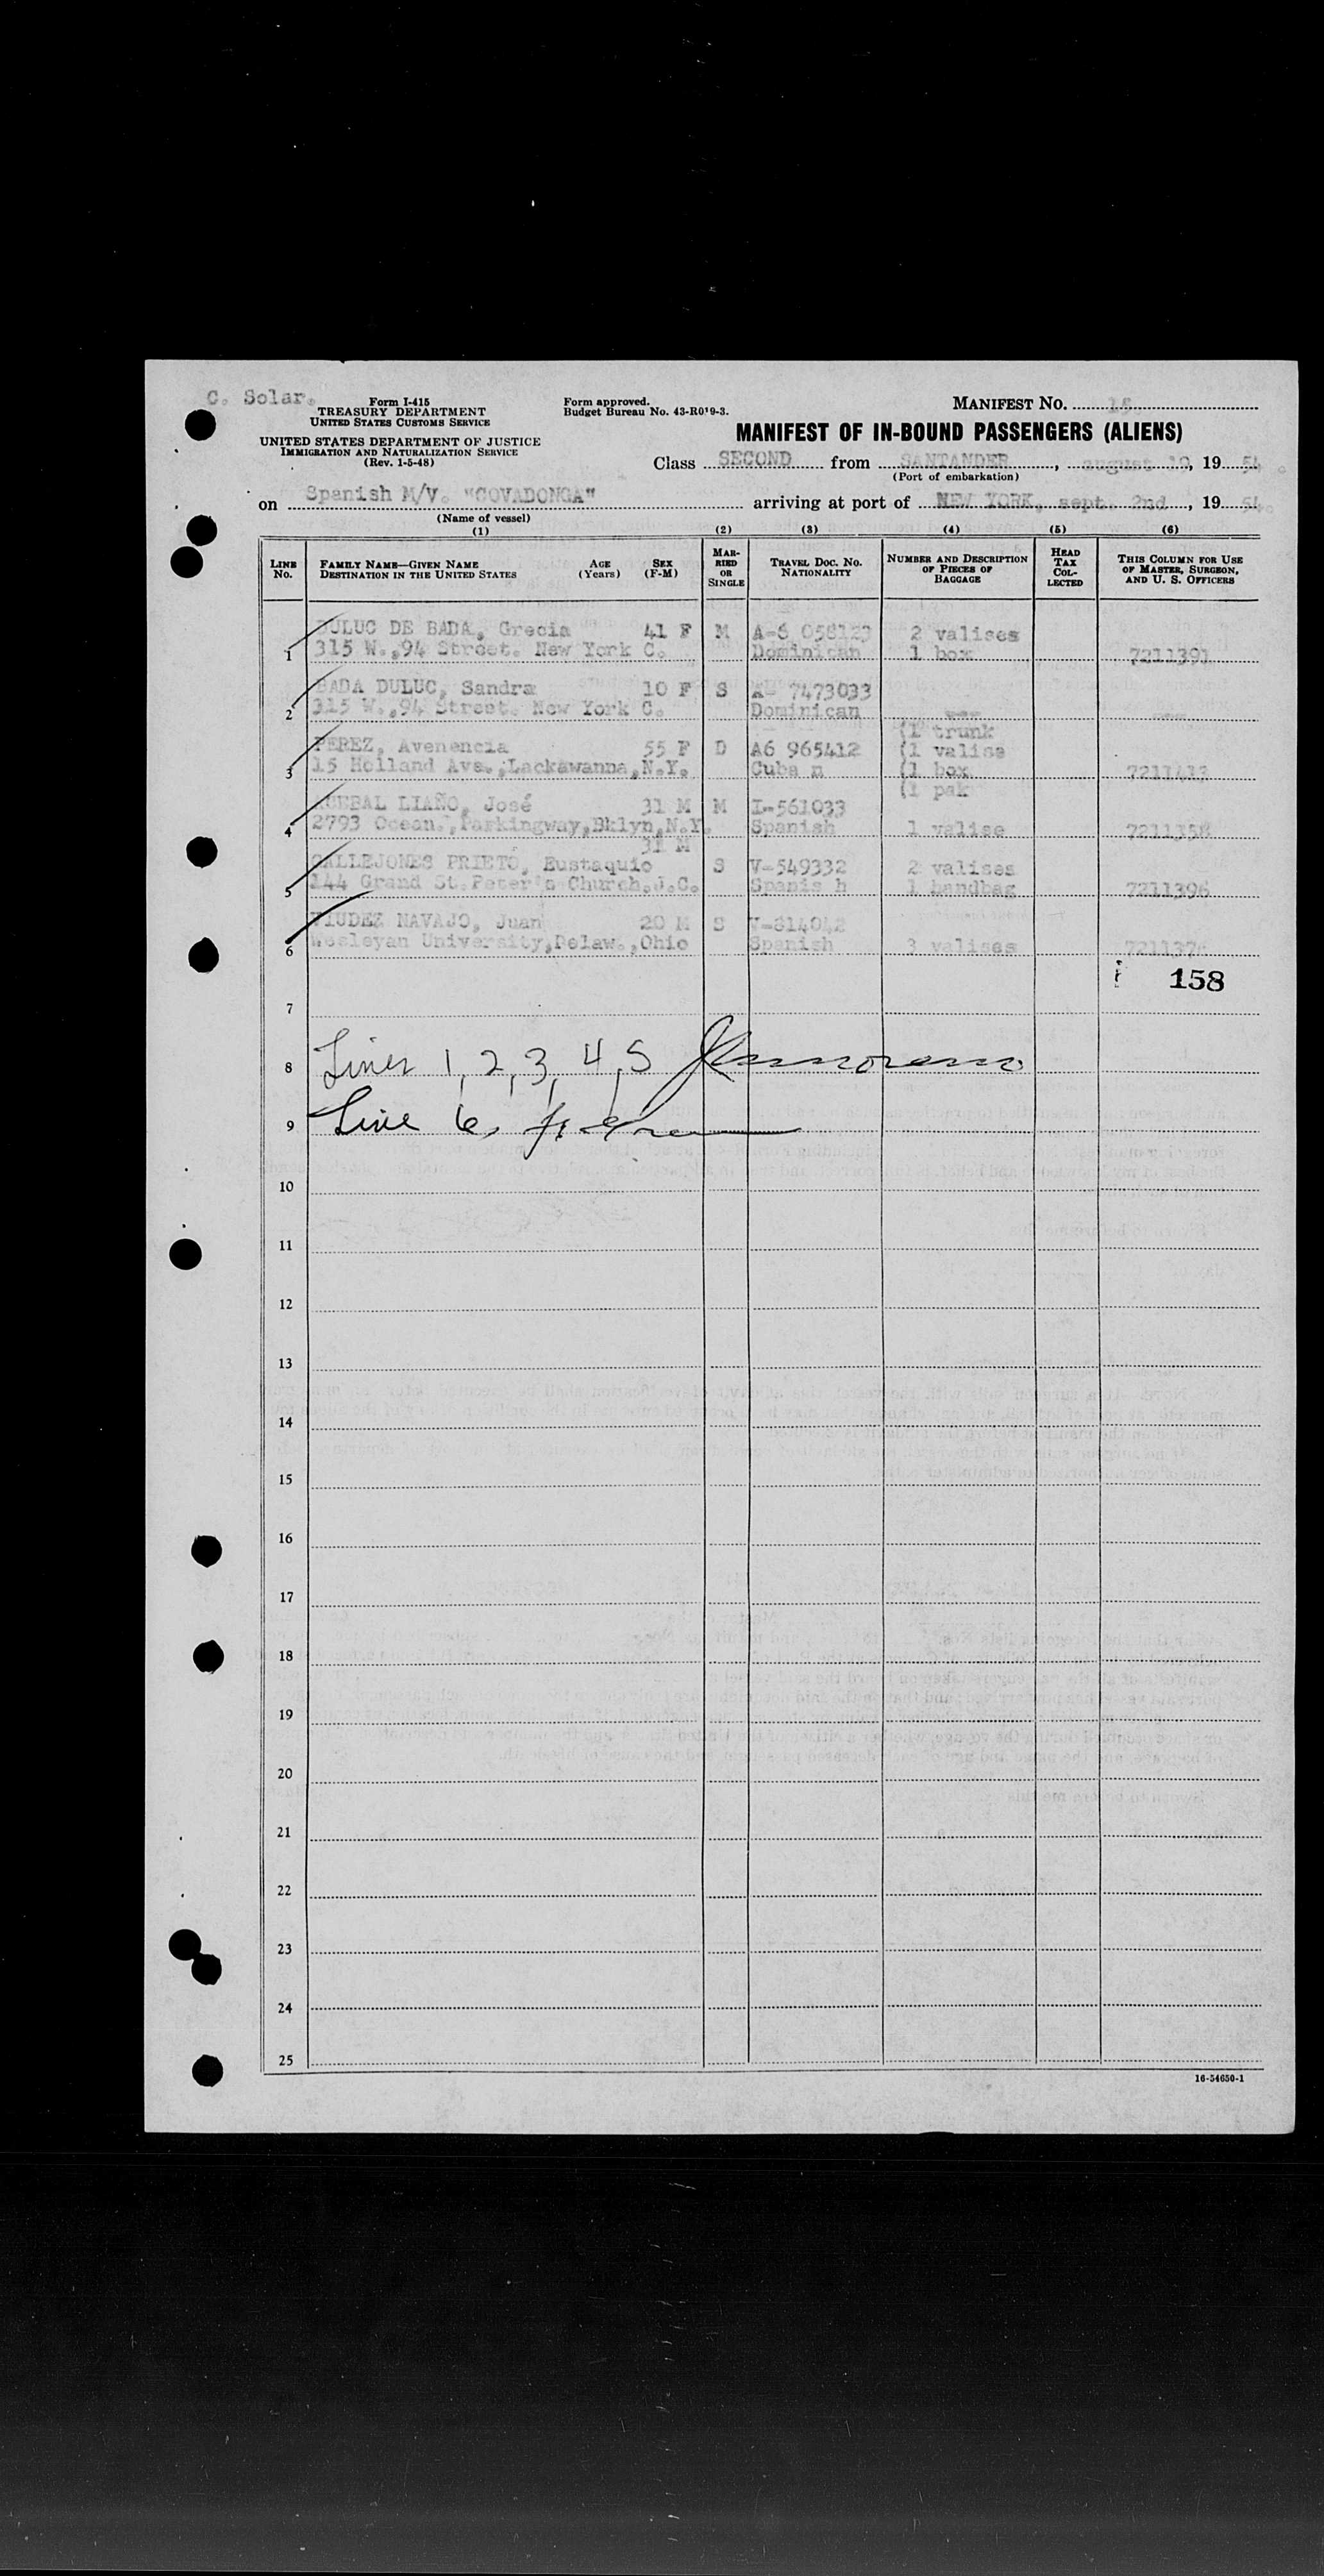 C. Solar.
Form I-415
TREASURY DEPARTMENT
UNITED STATES CUSTOMS SERVICE
UNITED STATES DEPARTMENT OF JUSTICE
IMMIGRATION AND NATURALIZATION SERVICE
(Rev. 1-5-48)
Form approved.
Budget Bureau No. 43-R019-3.
MANIFEST NO. 15.
MANIFEST OF IN-BOUND PASSENGERS (ALIENS)
Class SECOND from SANTANDER, august 19, 1954.
(Port of embarkation)
on Spanish M/V. "COVADONGA" arriving at port of NEW YORK, sept. 2nd, 1954.
(Name of vessel)
(1) (2) (3) (4) (5) (6)
LINE No. FAMILY NAME—GIVEN NAME DESTINATION IN THE UNITED STATES AGE (Years) SEX (F-M) MARRIED OR SINGLE TRAVEL DOC. NO. NATIONALITY NUMBER AND DESCRIPTION OF PIECES OF BAGGAGE HEAD TAX COLLECTED THIS COLUMN FOR USE OF MASTER, SURGEON, AND U. S. OFFICERS
DULUC DE BADA, Grecia 41 F M A-6 058123 2 valises
1 315 W.,94 Street. New York C. Dominican 1 box 7211391
BADA DULUC, Sandra 10 F S A- 7473033
2 315 W.,94 Street. New York C. Dominican
(1 trunk
PEREZ, Avenencia 55 F D A6 965412 (1 valise
3 15 Holland Ave.,Lackawanna,N.Y. Cuba n (1 box 7211413
(1 pak
ACEBAL LIAÑO, José 31 M M I-561033
4 2793 Ocean.,Parkingway,Bklyn,N.Y. Spanish 1 valise 7211358
31 M
CALLEJONES PRIETO, Eustaquio S V-549332 2 valises
5 144 Grand St.Peter's Church.J.C. Spanis h 1 handbag 7211396
VIUDEZ NAVAJO, Juan 20 M S V-814042
6 Wesleyan University,Delaw.,Ohio Spanish 3 valises
158
7
8 Lines 1, 2, 3, 4, 5
9 Line 6,
10
11
12
13
14
15
16
17
18
19
20
21
22
23
24
25
16-54650-1